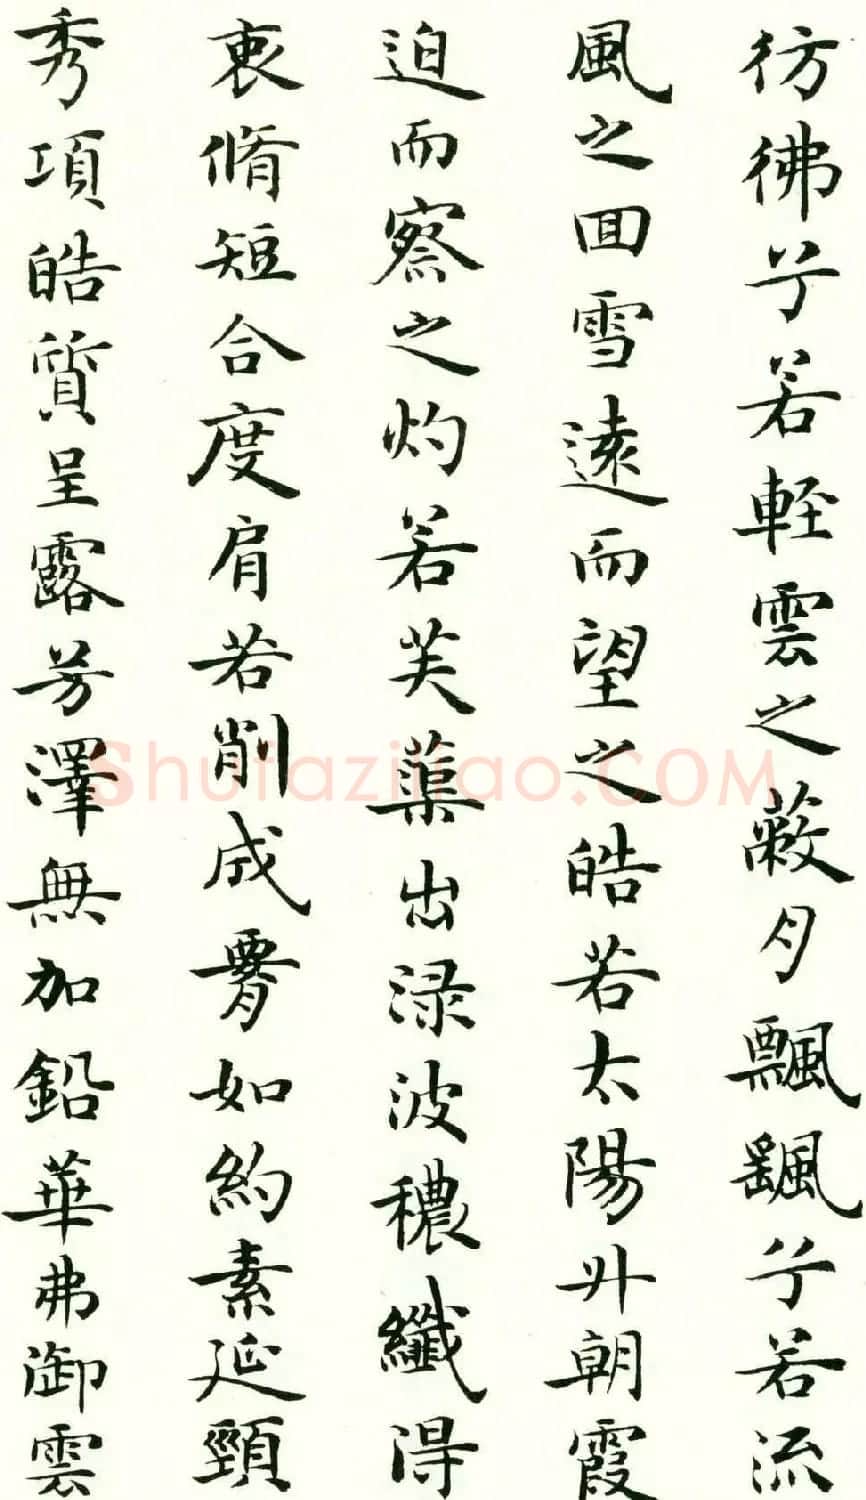 彷彿兮若輕雲之蔽月飄飖兮若流
風之回雪遠而望之皓若太陽升朝霞
迫而察之灼若芙蕖出淥波穠纖得
衷脩短合度肩若削成腰如約素延頸
秀項皓質呈露芳澤無加鉛華弗御雲
Shufaziliao.COM